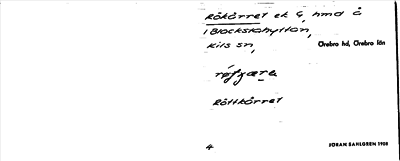 Rökärret ek 4, hmd å
i Blackstahyttan,
Kils sn, Örebro hd, Örebro län
Röttkärret
4 JÖRAN SAHLGREN 1928